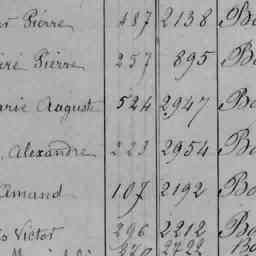 Pierre 487 2138 Bo
Pierre 257 895 Bo
Auguste 524 2947 Bo
Alexandre 223 2954 Bo
Amand 107 2192 Bo
Victor 296 2212 Bo
2722 Bo